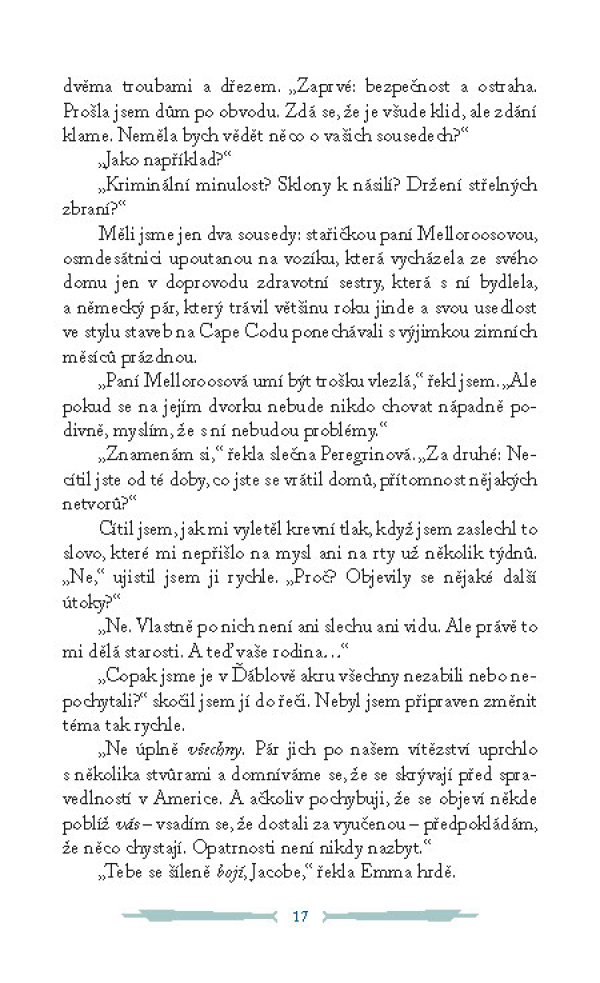 dvěma troubami a dřezem. „Zaprvé: bezpečnost a ostraha.
Prošla jsem dům po obvodu. Zdá se, že je všude klid, ale zdání
klame. Neměla bych vědět něco o vašich sousedech?“
„Jako například?“
„Kriminální minulost? Sklony k násilí? Držení střelných
zbraní?“
Měli jsme jen dva sousedy: stařičkou paní Melloroosovou,
osmdesátnici upoutanou na vozíku, která vycházela ze svého
domu jen v doprovodu zdravotní sestry, která s ní bydlela,
a německý pár, který trávil většinu roku jinde a svou usedlost
ve stylu staveb na Cape Codu ponechávali s výjimkou zimních
měsíců prázdnou.
„Paní Melloroosová umí být trošku vlezlá,“ řekl jsem. „Ale
pokud se na jejím dvorku nebude nikdo chovat nápadně po-
divně, myslím, že s ní nebudou problémy.“
„Znamenám si,“ řekla slečna Peregrinová. „Za druhé: Ne-
cítil jste od té doby, co jste se vrátil domů, přítomnost nějakých
netvorů?“
Cítil jsem, jak mi vyletěl krevní tlak, když jsem zaslechl to
slovo, které mi nepřišlo na mysl ani na rty už několik týdnů.
„Ne,“ ujistil jsem ji rychle. „Proč? Objevily se nějaké další
útoky?“
„Ne. Vlastně po nich není ani slechu ani vidu. Ale právě to
mi dělá starosti. A teď vaše rodina…“
„Copak jsme je v Ďáblově akru všechny nezabili nebo ne-
pochytali?“ skočil jsem jí do řeči. Nebyl jsem připraven změnit
téma tak rychle.
„Ne úplně všechny. Pár jich po našem vítězství uprchlo
s několika stvůrami a domníváme se, že se skrývají před spra-
vedlností v Americe. A ačkoliv pochybuji, že se objeví někde
poblíž vás – vsadím se, že dostali za vyučenou – předpokládám,
že něco chystají. Opatrnosti není nikdy nazbyt.“
„Tebe se šíleně bojí, Jacobe,“ řekla Emma hrdě.
17